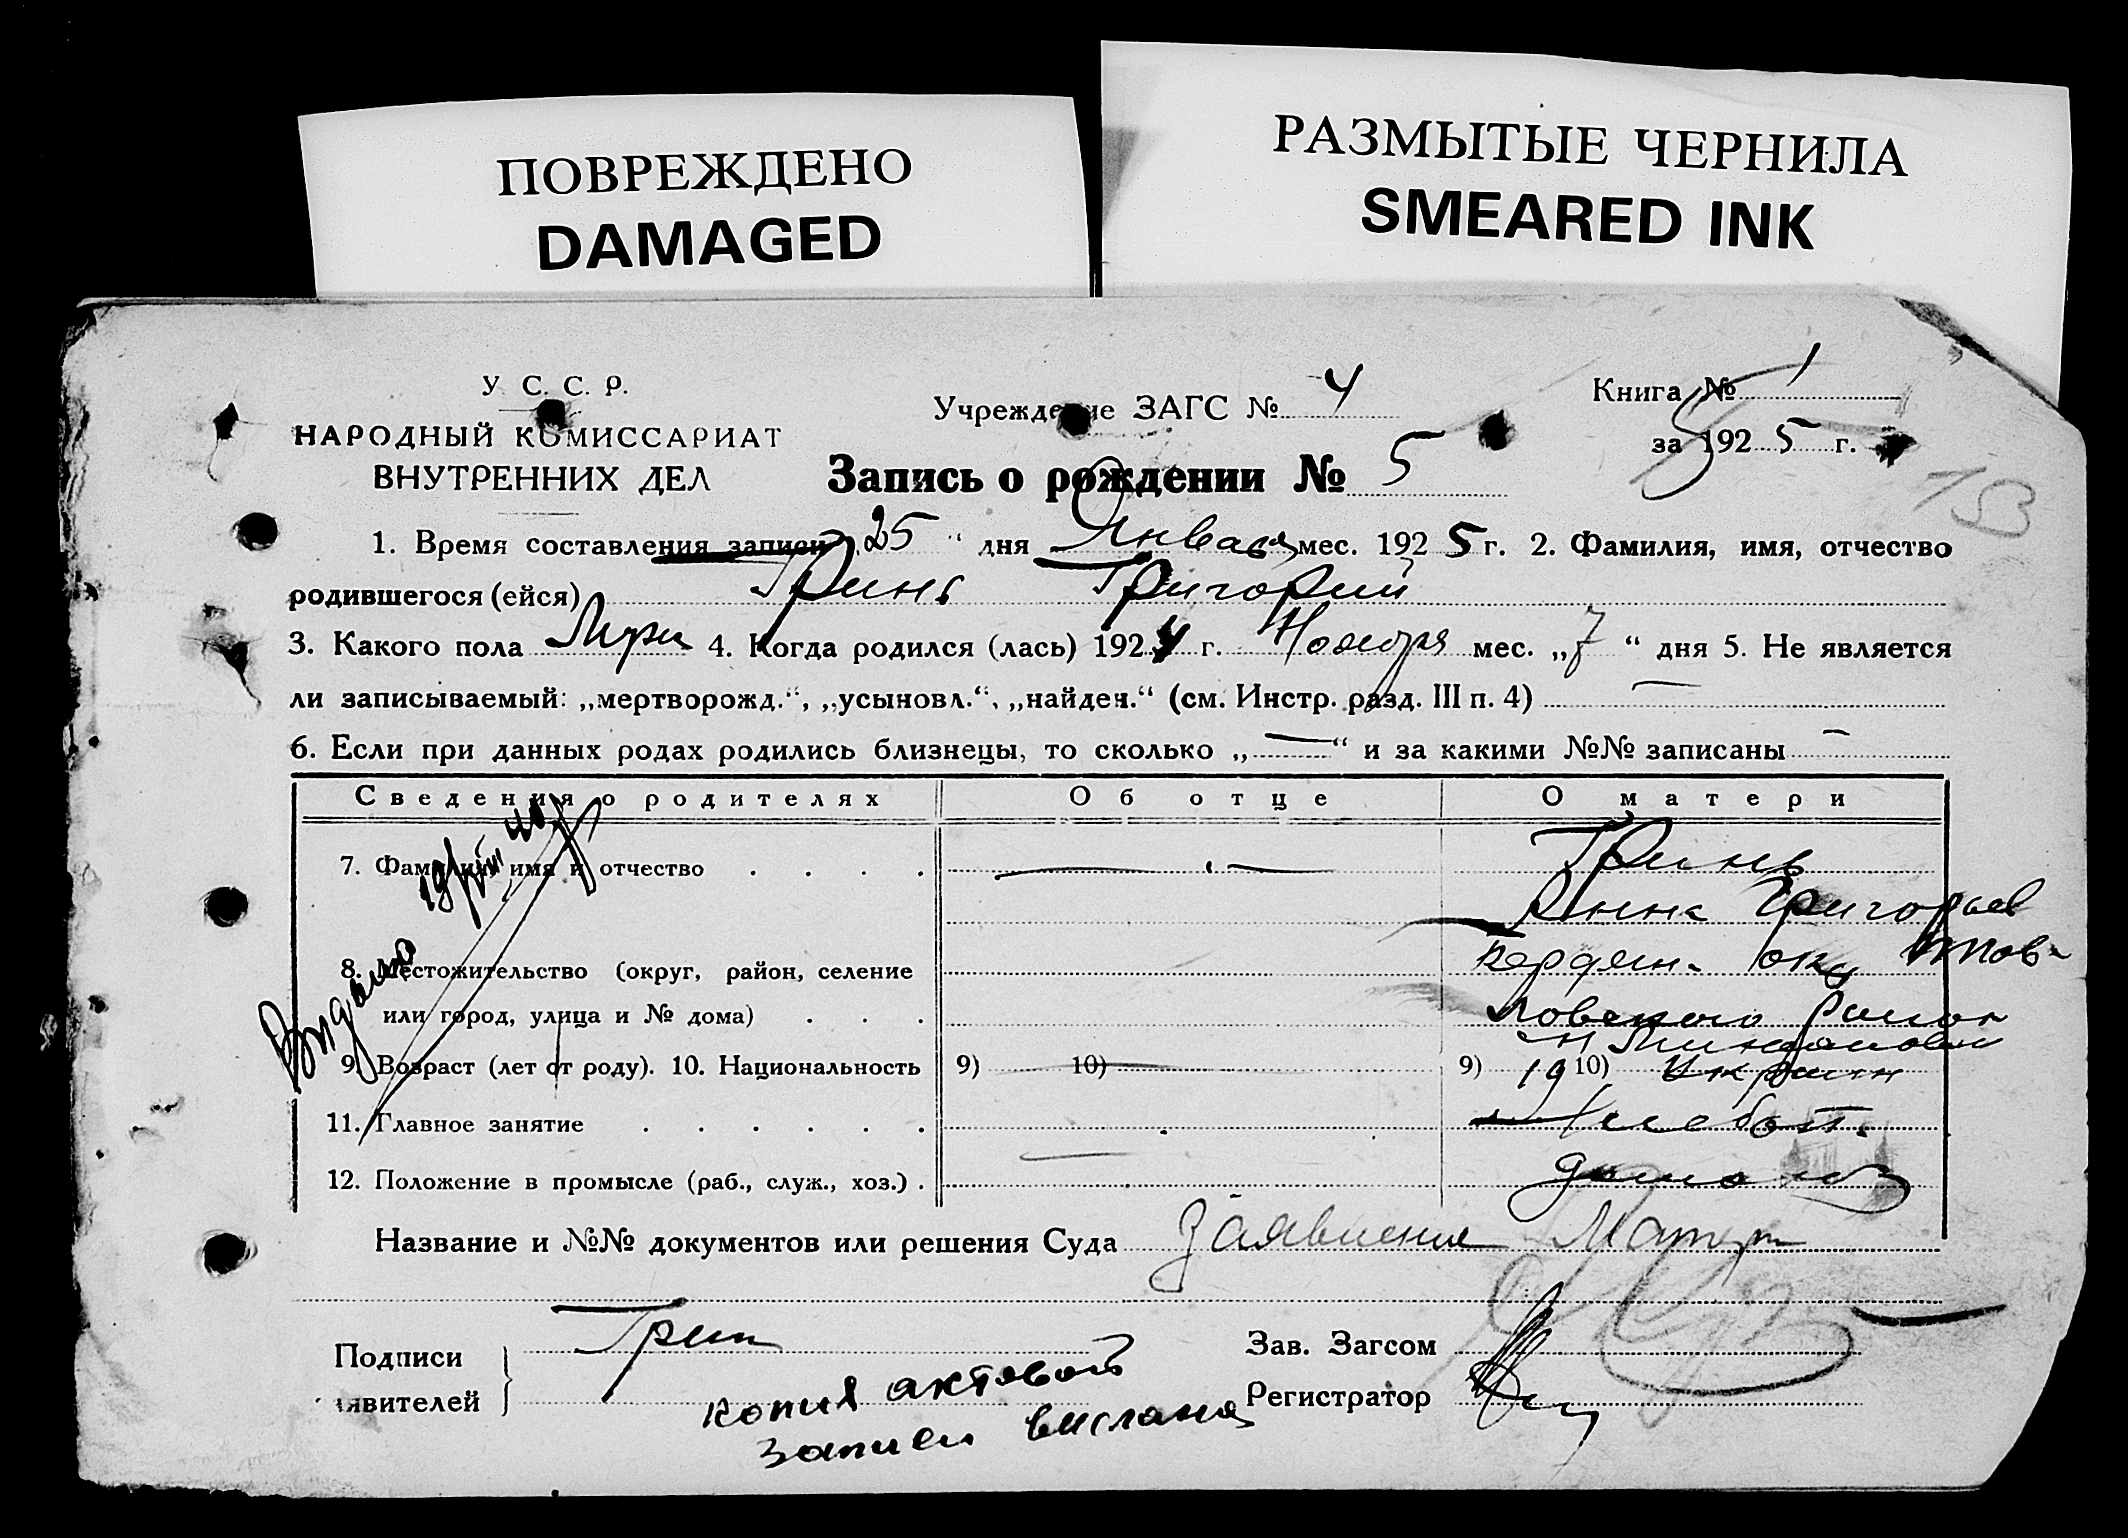 ПОВРЕЖДЕНО
DAMAGED
РАЗМЫТЫЕ ЧЕРНИЛА
SMEARED INK
У. С. С. Р.
НАРОДНЫЙ КОМИССАРИАТ
ВНУТРЕННИХ ДЕЛ
Учреждение ЗАГС № 4
Книга № 1
за 1925 г.
Запись о рождении № 5
13
1. Время составления записи „25“ дня Января мес. 1925 г. 2. Фамилия, имя, отчество
родившегося (ейся) Гринь Григорий
3. Какого пола Муж 4. Когда родился (лась) 1924 г. Ноября мес. „7“ дня 5. Не является
ли записываемый: „мертворожд.“, „усыновл.“, „найден.“ (см. Инстр. разд. III п. 4) —
6. Если при данных родах родились близнецы, то сколько „—“ и за какими №№ записаны —
Сведения о родителях Об отце О матери
7. Фамилия, имя и отчество — Гринь
Анна Григорьев
8. Местожительство (округ, район, селение Бердян. окр
или город, улица и № дома) ловского район
9. Возраст (лет от роду). 10. Национальность 9) 10) 9) 19 10) Украин
11. Главное занятие Хлебоп.
12. Положение в промысле (раб., служ., хоз.)
Выдано 19/VIII 40
Название и №№ документов или решения Суда Заявление Матери
Подписи Грин
явителей
Зав. Загсом
Регистратор
копия актовой
записи выслана